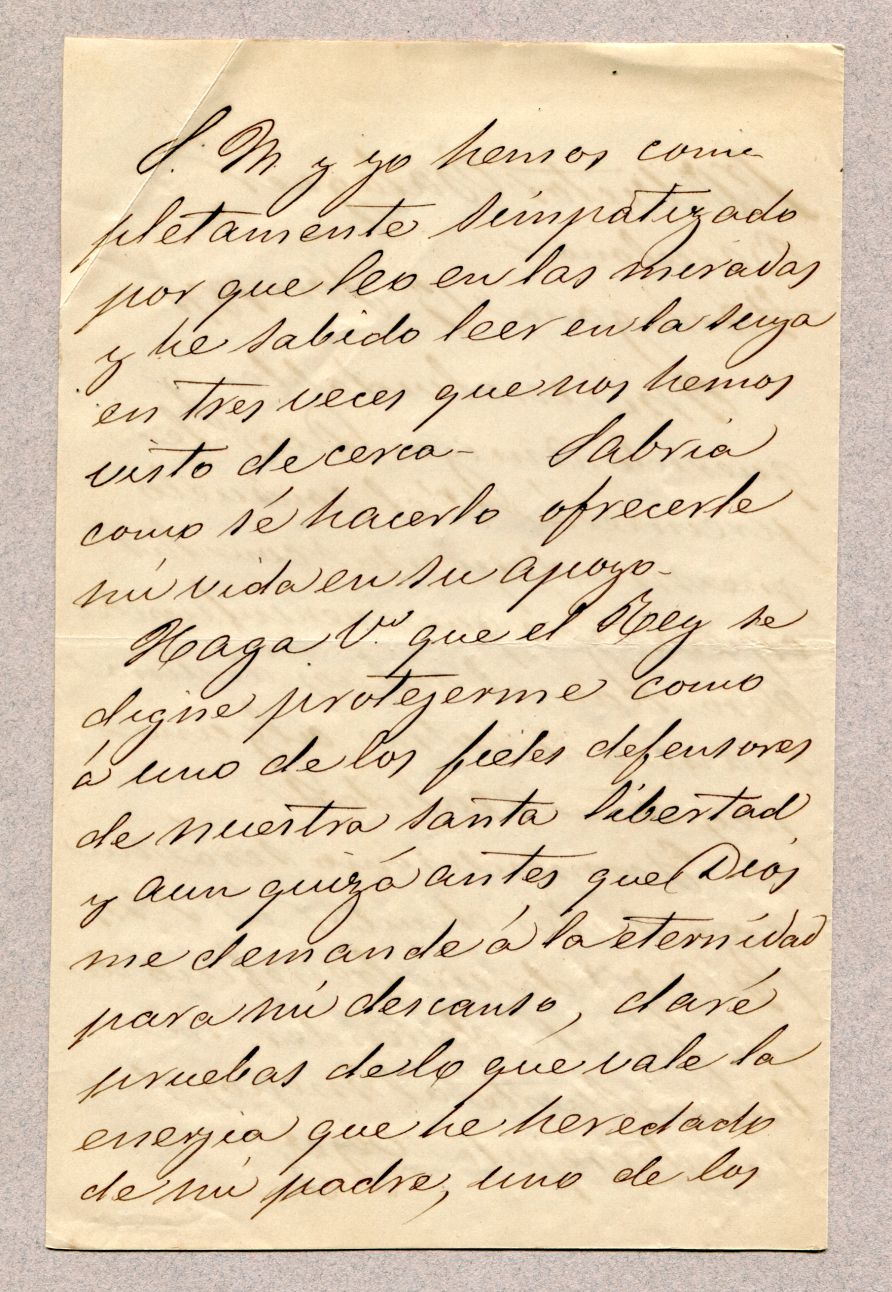 S. M. y yo hemos com-
pletamente simpatizado
por que leo en las miradas
y he sabido leer en la suya
en tres veces que nos hemos
visto de cerca- Sabria
como sé hacerlo ofrecerle
mi vida en su apoyo-
Haga V. que el Rey se
digne protejerme como
á uno de los fieles defensores
de nuestra santa libertad
y aun quizá antes que Dios
me demande á la eternidad
para mi descanso, daré
pruebas de lo que vale la
energia que he heredado
de mi padre, uno de los